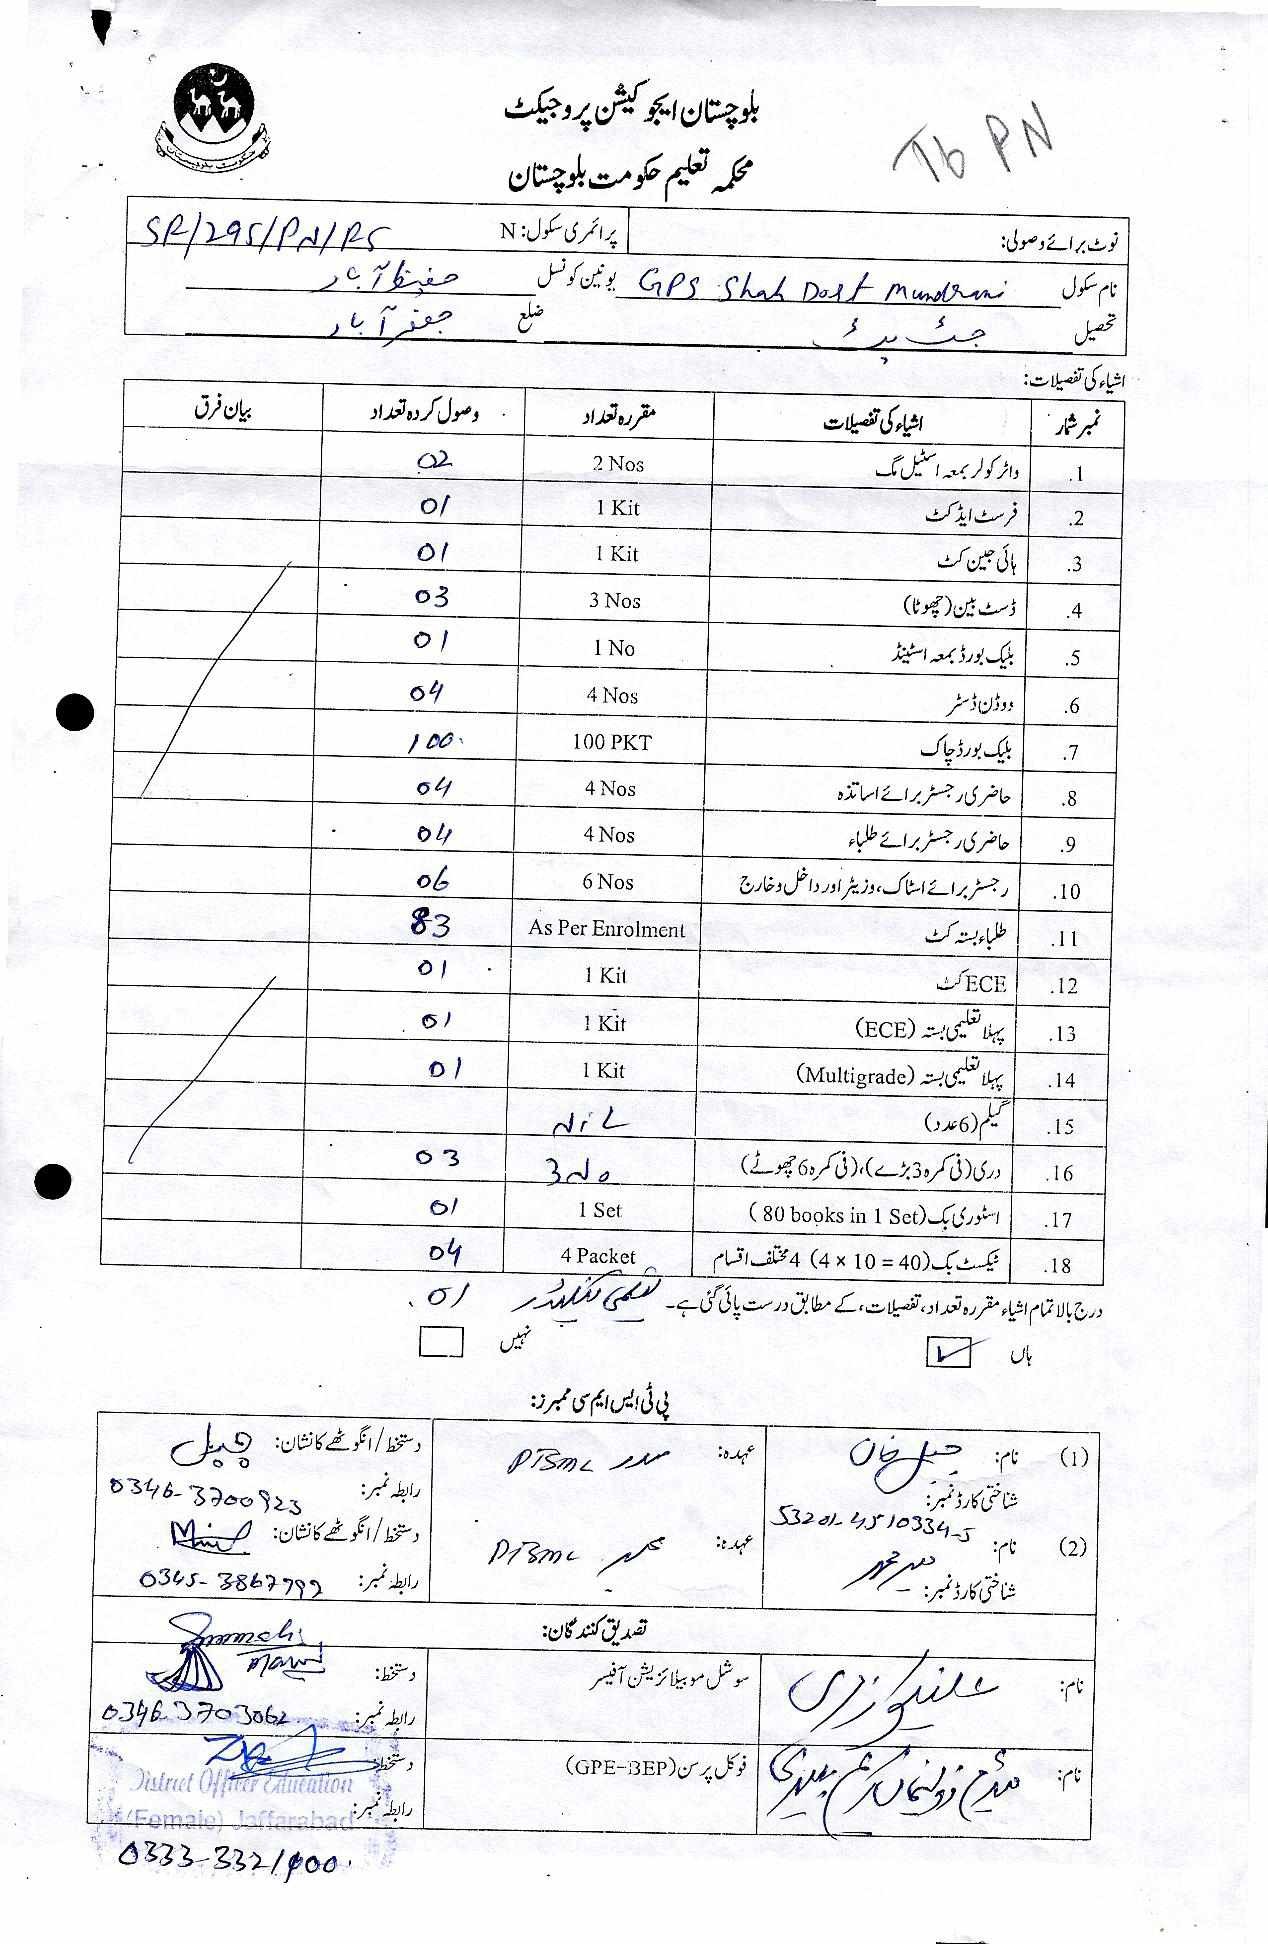 بلوچستان ایجوکیشن پروجیکٹ
محکمہ تعلیم حکومت بلوچستان
Tb PN
حکومت بلوچستان
نوٹ برائے وصولی: پرائمری سکول: N SR/295/PN/RS
نام سکول GPS Shah Dost Mundrani یونین کونسل حفیظ آباد
تحصیل جھٹ پٹ ضلع جعفر آباد
اشیاء کی تفصیلات:
نمبر شمار اشیاء کی تفصیلات مقررہ تعداد وصول کردہ تعداد بیان فرق
1. واٹر کولر بمعہ اسٹیل مگ 2 Nos 02
2. فرسٹ ایڈ کٹ 1 Kit 01
3. ہائی جین کٹ 1 Kit 01
4. ڈسٹ بین (چھوٹا) 3 Nos 03
5. بلیک بورڈ بمعہ اسٹینڈ 1 No 01
6. ووڈن ڈسٹر 4 Nos 04
7. بلیک بورڈ چاک 100 PKT 100
8. حاضری رجسٹر برائے اساتذہ 4 Nos 04
9. حاضری رجسٹر برائے طلباء 4 Nos 04
10. رجسٹر برائے اسٹاک، وزیٹر اور داخل و خارج 6 Nos 06
11. طلباء بستہ کٹ As Per Enrolment 83
12. ECE کٹ 1 Kit 01
13. پہلا تعلیمی بستہ (ECE) 1 Kit 01
14. پہلا تعلیمی بستہ (Multigrade) 1 Kit 01
15. گیلم (6 عدد) NiL
16. دری (فی کمرہ 3 بڑے)، (فی کمرہ 6 چھوٹے) 3 No 03
17. اسٹوری بک (80 books in 1 Set) 1 Set 01
18. ٹیکسٹ بک (4 × 10 = 40) 4 مختلف اقسام 4 Packet 04
درج بالا تمام اشیاء مقررہ تعداد، تفصیلات، کے مطابق درست پائی گئی ہے۔ تعلیمی کیلنڈر 01
ہاں ✓ نہیں
پی ٹی ایس ایم سی ممبرز:
(1) نام: جمیل خان عہدہ: صدر PTSMC دستخط/انگوٹھے کا نشان: جمیل
شناختی کارڈ نمبر: 53201-4510334-5 رابطہ نمبر: 0346-3700923
(2) نام: میر محمد عہدہ: ممبر PTSMC دستخط/انگوٹھے کا نشان:
شناختی کارڈ نمبر: رابطہ نمبر: 0345-3867792
تصدیق کنندگان:
نام: سوشل موبیلائزیشن آفیسر دستخط:
رابطہ نمبر: 0346-3703062
نام: فوکل پرسن (GPE-BEP) دستخط:
District Officer Education
رابطہ نمبر:
(Female) Jaffarabad
0333-3321400